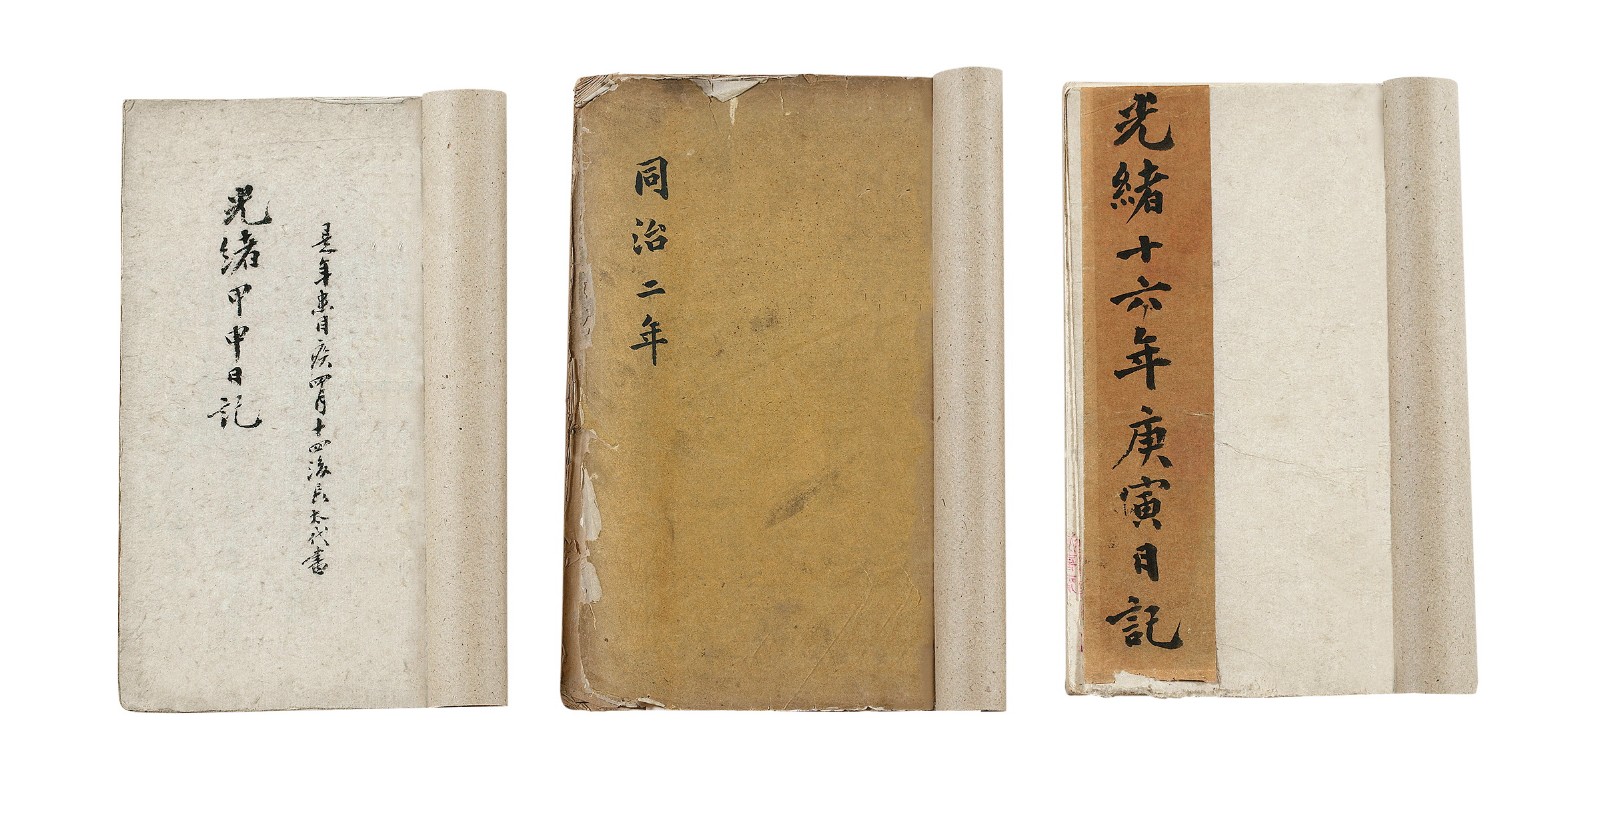 是年患目疾四月十四後太代書
光緒甲申日記
同治二年
光緒十六年庚寅日記